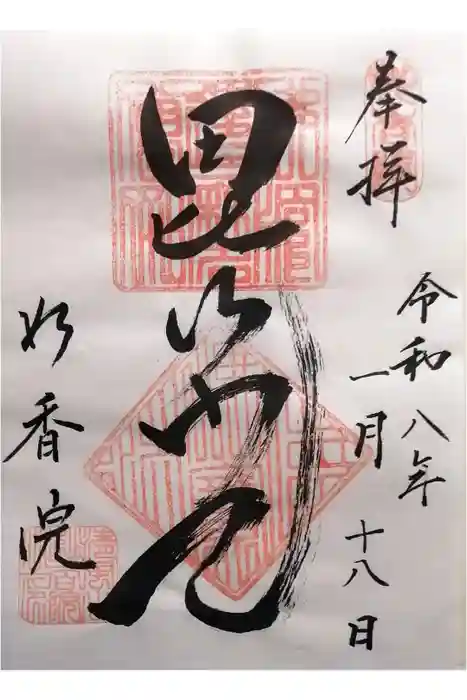 奉拝
令和八年
一月十八日
毘沙門天
妙香院